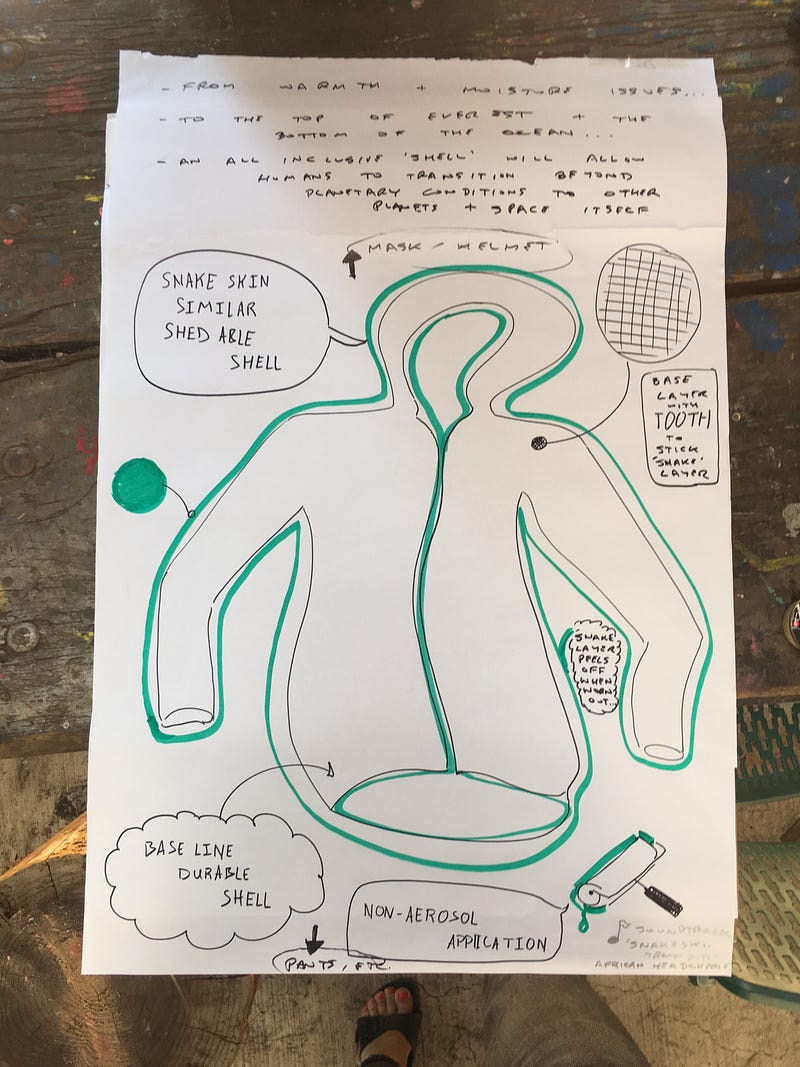 - FROM WARMTH + MOISTURE ISSUES...
- TO THE TOP OF EVEREST + THE
BOTTOM OF THE OCEAN...
- AN ALL INCLUSIVE 'SHELL' WILL ALLOW
HUMANS TO TRANSITION BEYOND
PLANETARY CONDITIONS TO OTHER
PLANETS + SPACE ITSELF
MASK / HELMET
SNAKE SKIN
SIMILAR
SHED ABLE
SHELL
BASE
LAYER
WITH
TOOTH
TO
STICK
'SNAKE'
LAYER
'SNAKE'
LAYER
PEELS
OFF
WHEN
WORN
OUT...
BASE LINE
DURABLE
SHELL
NON-AEROSOL
APPLICATION
PANTS, ETC.
SOUNDTRACK
'SNAKESKIN
AFRICAN HEADCHARGE